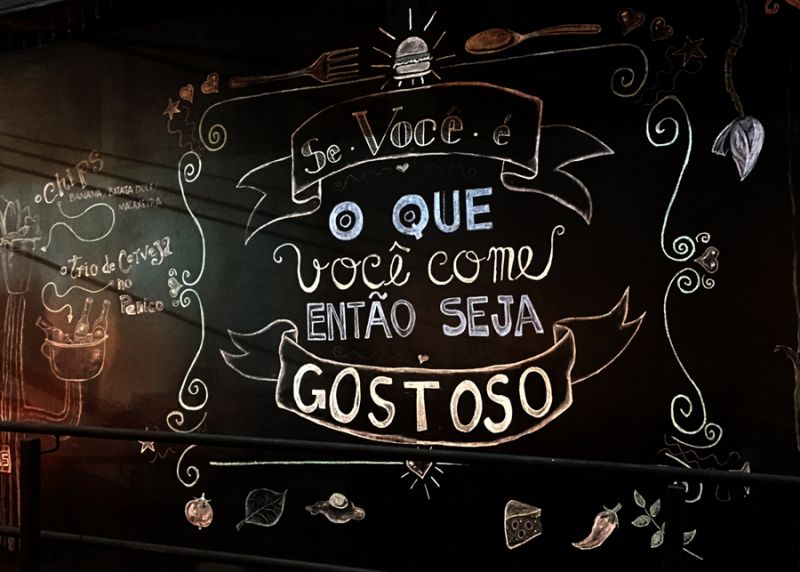 Se · Você · é
O QUE
você come
ENTÃO SEJA
GOSTOSO
Chips
BANANA, BATATA DOCE,
MACAXEIRA
Trio de Cerveja
no
Penico